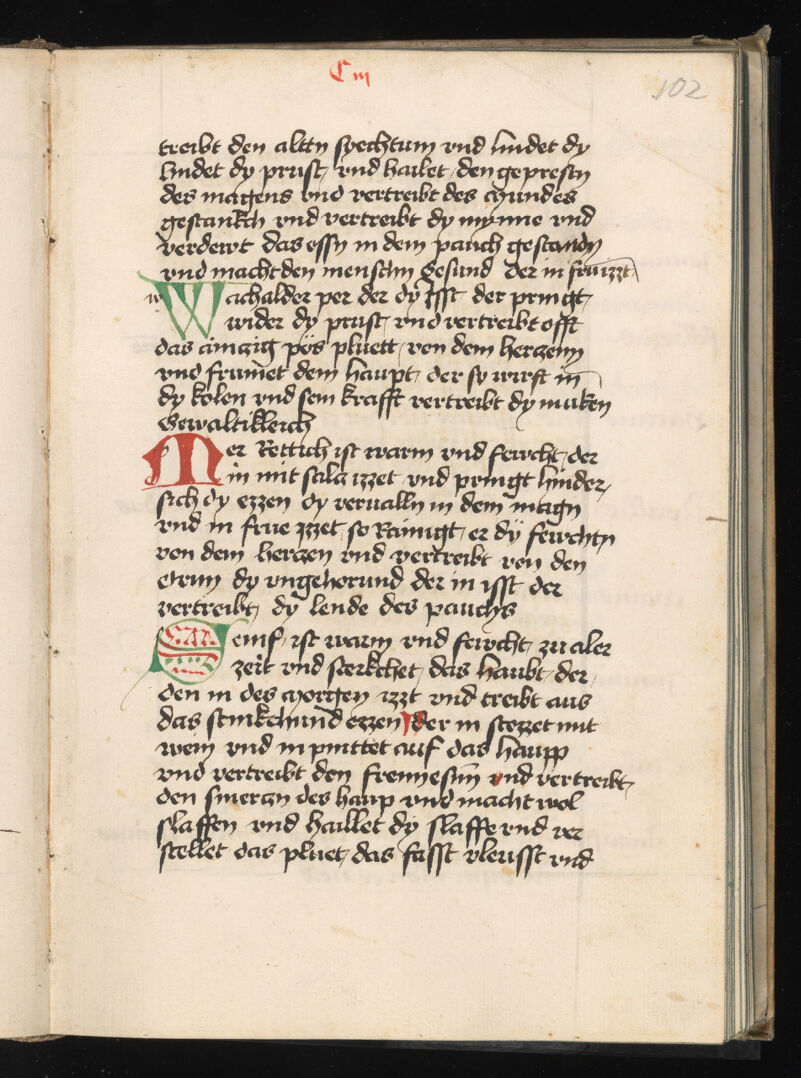 C iij
102
treibt den alttn syechtum vnd lindet dy
lindet dy prust vnd hailet den geprestn
des magens vnd vertreibt des mundes
gestankch vnd vertreibt dy mynne vnd
verdewt das essn in dem pauch gestandn
vnd macht den menschn gesund der in fruizzt
w
Wachalder per der dy Isst der pringt
wider dy prust vnd vertreibt offt
das ainzig pös pluett von dem herczenn
vnd frumet dem haupt der sy wirft in
dy kolen vnd sein krafft vertreibt dy muken
Gewaltikleich
Mer Rettich ist warm vnd fewcht der
in mit salcz izzet vnd pringt hinder
sich dy ezzen dy verualln in dem magn
vnd in frue yzzet so Rainigt er dy fewchtn
von dem herczen vnd vertreibt von den
orun dy vngehorund der in ysst der
vertreibt dy lende des pauchs
Senif ist warm vnd fewcht zu aler
zeit vnd sterkchet das haubt der
den in des morgen izzt vnd treibt aus
das stinkchund ezzen der in stozzet mit
wein vnd in pinttet auf das haupp
vnd vertreibt den frennesin vnd vertreibt
den smerczn des haup vnd macht wol
slaffen vnd haillet dy slaffe vnd ver
stellet das pluet das fasst vleusst vnd